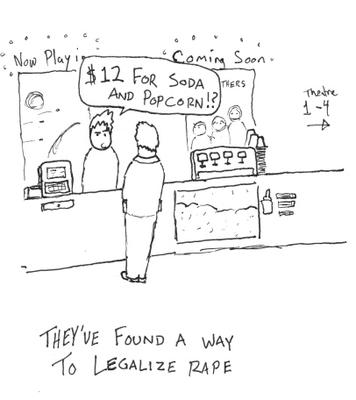 Now Playi
Coming Soon
$12 FOR SODA
AND POPCORN!?
THERS
Theatre
1-4
THEY'VE FOUND A WAY
TO LEGALIZE RAPE